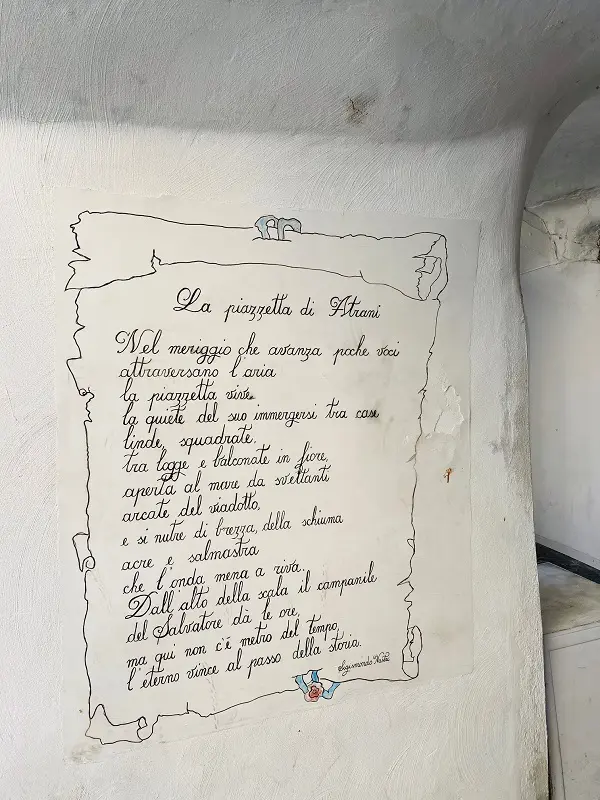 La piazzetta di Atrani
Nel meriggio che avanza poche voci
attraversano l'aria
la piazzetta vive
la quiete del suo immergersi tra case
linde, squadrate.
tra logge e balconate in fiore,
aperta al mare da svettanti
arcate del viadotto,
e si nutre di brezza, della schiuma
acre e salmastra
che l'onda mena a riva.
Dall'alto della scala il campanile
del Salvatore dà le ore,
ma qui non c'è metro del tempo,
l'eterno vince al passo della storia.
Sigismondo